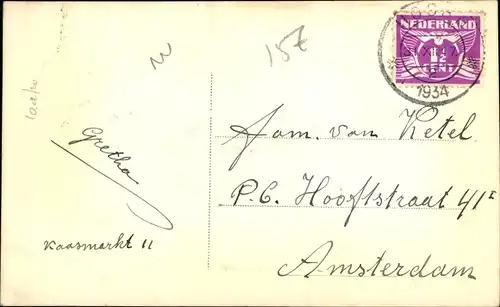 15E
NEDERLAND
1½
CENT
1934
Gretha
Kaasmarkt 11
Fam. van Ketel
P.C. Hooftstraat 41 I
Amsterdam